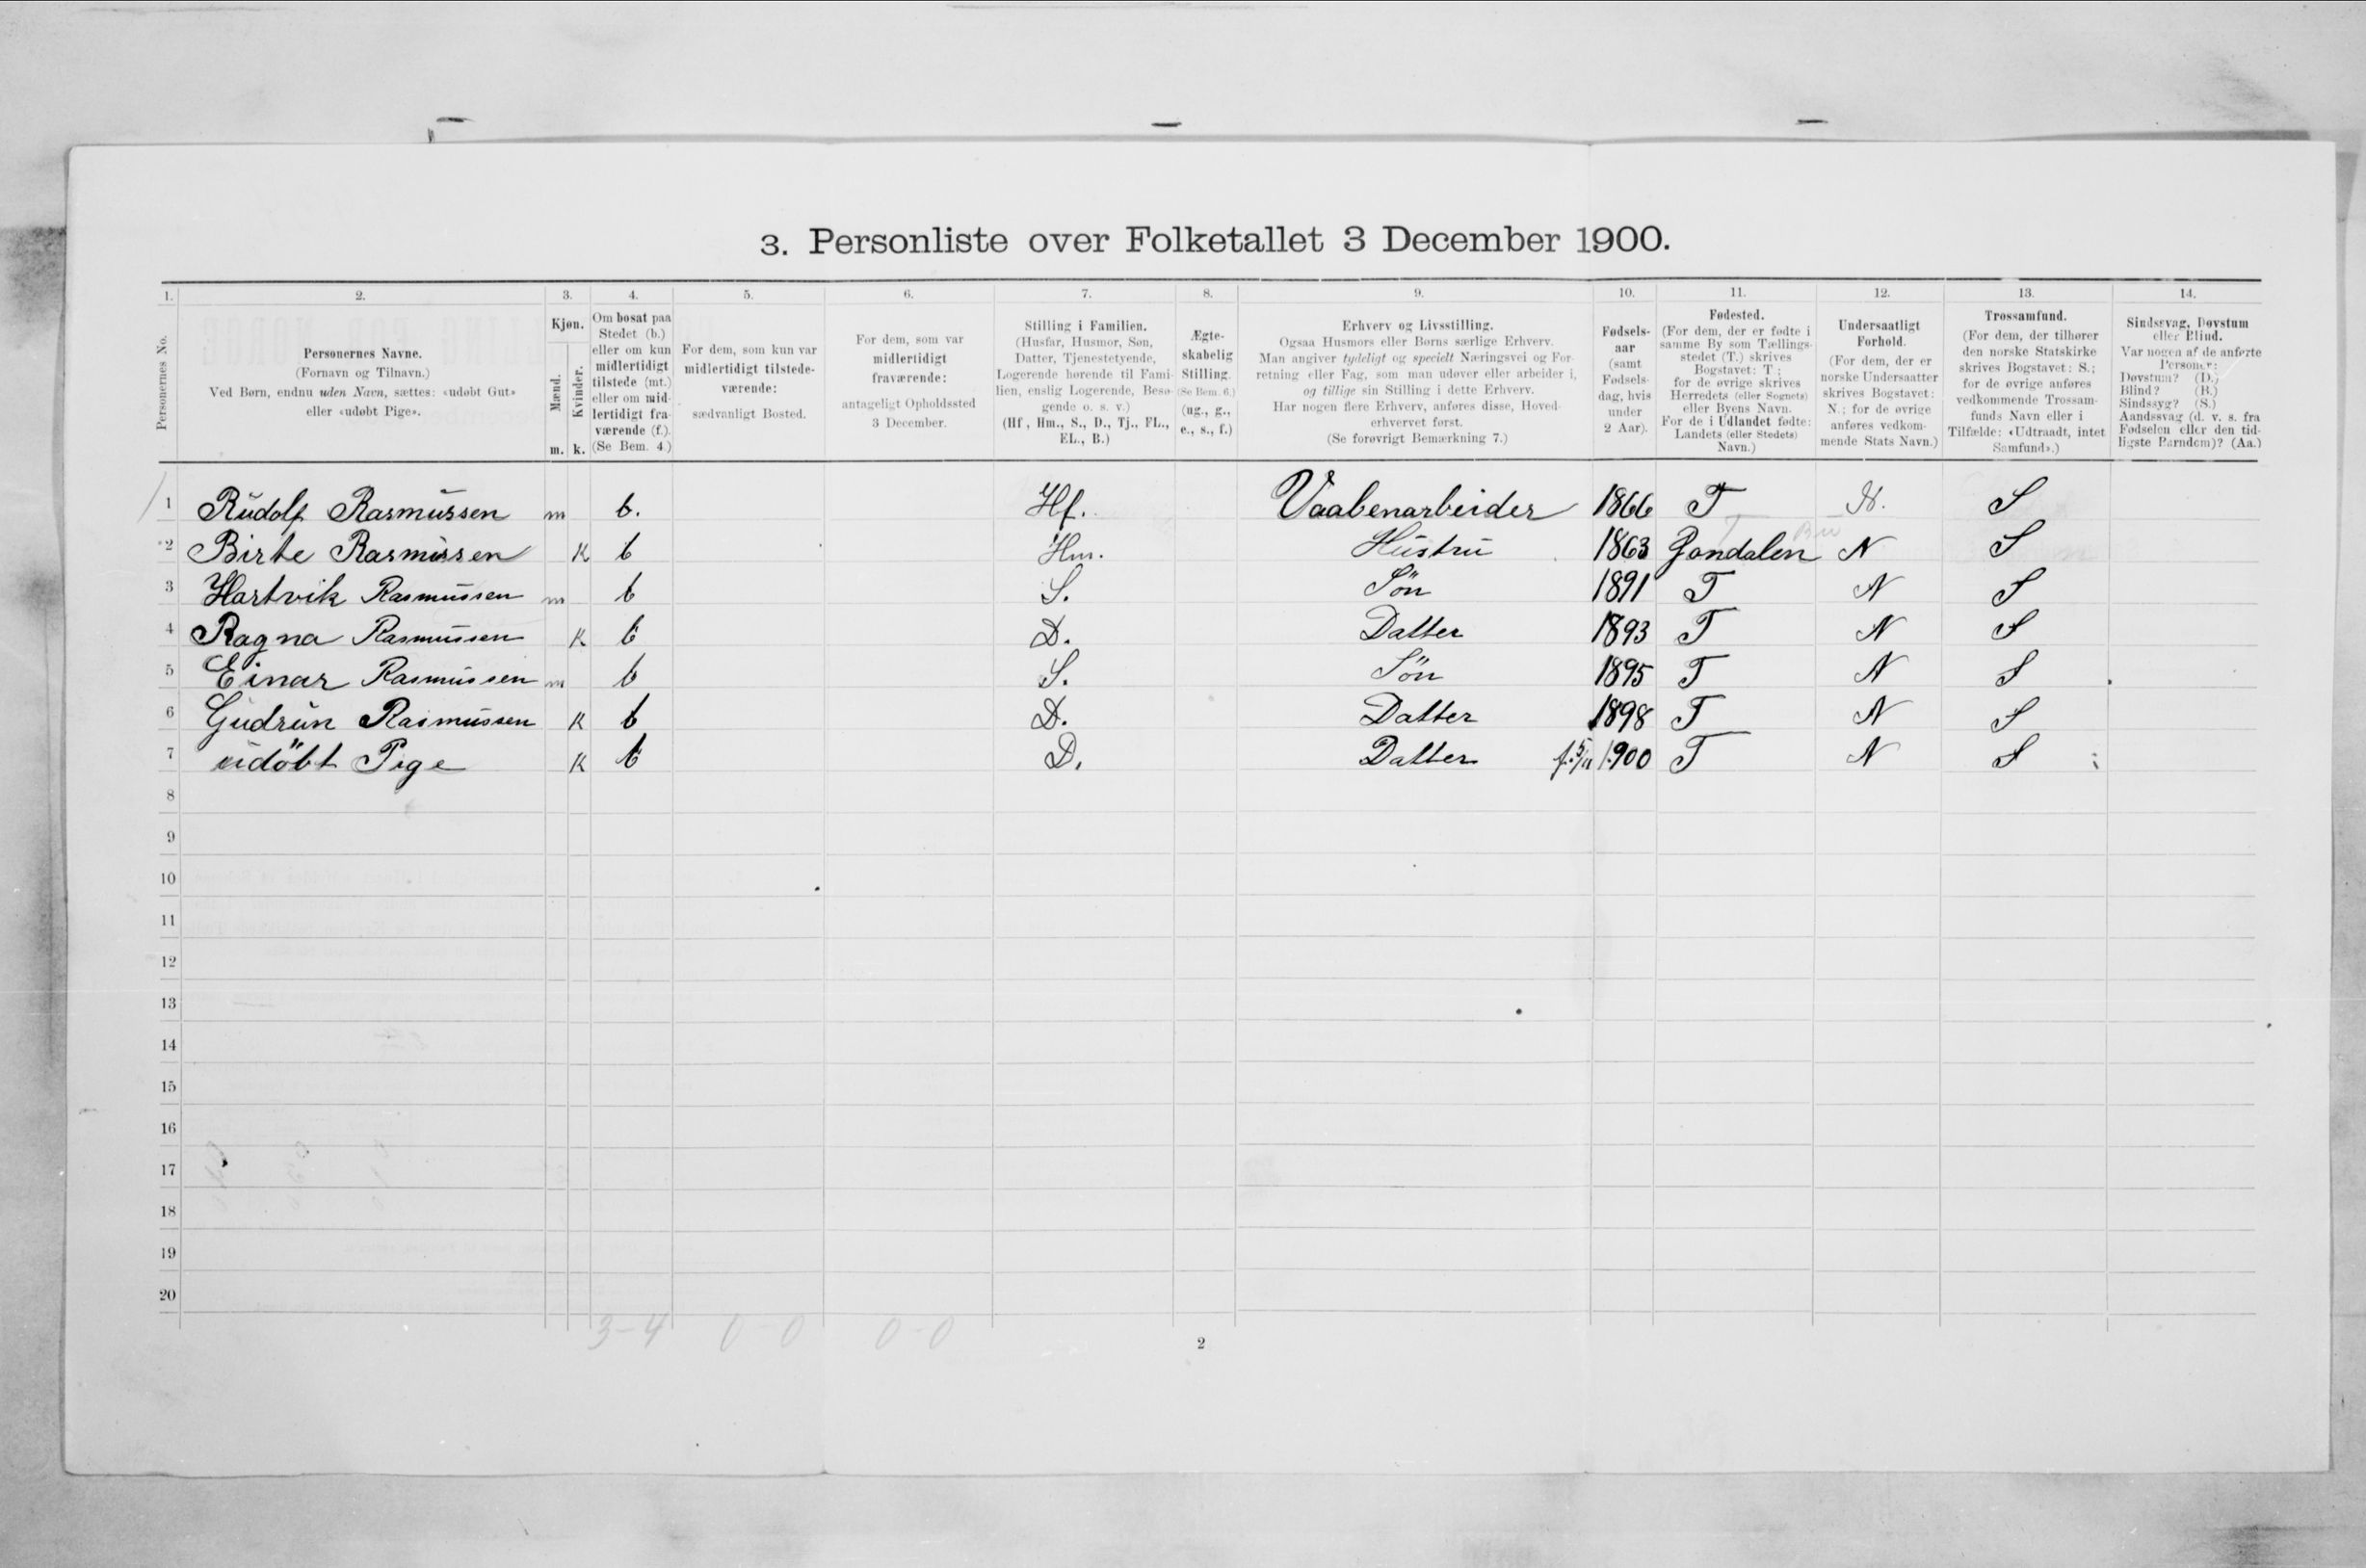 3. Personliste over Folketallet 3 December 1900.
1. 2. 3. 4. 5. 6. 7. 8. 9. 10. 11. 12. 13. 14.
Personernes No.
Personernes Navne.
(Fornavn og Tilnavn.)
Ved Børn, endnu uden Navn, sættes: «udøbt Gut»
eller «udøbt Pige».
Kjøn.
Mænd.
Kvinder.
m. k.
Om bosat paa
Stedet (b.)
eller om kun
midlertidigt
tilstede (mt.)
eller om mid-
lertidigt fra-
værende (f.).
(Se Bem. 4.)
For dem, som kun var
midlertidigt tilstede-
værende:
sædvanligt Bosted.
For dem, som var
midlertidigt
fraværende:
antageligt Opholdssted
3 December.
Stilling i Familien.
(Husfar, Husmor, Søn,
Datter, Tjenestetyende,
Logerende hørende til Fami-
lien, enslig Logerende, Besø-
gende o. s. v.)
(Hf., Hm., S., D., Tj., FL.,
EL., B.)
Ægte-
skabelig
Stilling.
(Se Bem. 6.)
(ug., g.,
e., s., f.)
Erhverv og Livsstilling.
Ogsaa Husmors eller Børns særlige Erhverv.
Man angiver tydeligt og specielt Næringsvei og For-
retning eller Fag, som man udøver eller arbeider i,
og tillige sin Stilling i dette Erhverv.
Har nogen flere Erhverv, anføres disse, Hoved-
erhvervet først.
(Se forøvrigt Bemærkning 7.)
Fødsels-
aar
(samt
Fødsels-
dag, hvis
under
2 Aar).
Fødested.
(For dem, der er fødte i
samme By som Tællings-
stedet (T.) skrives
Bogstavet: T ;
for de øvrige skrives
Herredets (eller Sognets)
eller Byens Navn.
For de i Udlandet fødte:
Landets (eller Stedets)
Navn.)
Undersaatligt
Forhold.
(For dem, der er
norske Undersaatter
skrives Bogstavet:
N.; for de øvrige
anføres vedkom-
mende Stats Navn.)
Trossamfund.
(For dem, der tilhører
den norske Statskirke
skrives Bogstavet: S.;
for de øvrige anføres
vedkommende Trossam-
funds Navn eller i
Tilfælde: «Udtraadt, intet
Samfund».)
Sindssvag, Døvstum
eller Blind.
Var nogen af de anførte
Personer:
Døvstum? (D.)
Blind? (B.)
Sindssyg? (S.)
Aandssvag (d. v. s. fra
Fødselen eller den tid-
ligste Barndom)? (Aa.)
1 Rudolf Rasmussen m b. Hf. Vaabenarbeider 1866 T N. S
2 Birte Rasmussen K b Hm. Hustru 1863 Jondalen N S
3 Hartvik Rasmussen m b S. Søn 1891 T N S
4 Ragna Rasmussen K b D. Datter 1893 T N S
5 Einar Rasmussen m b S. Søn 1895 T N S
6 Gudrun Rasmussen K b D. Datter 1898 T N S
7 udøbt Pige K b D. Datter f. 5/11 1900 T N S
8
9
10
11
12
13
14
15
16
17
18
19
20
3-4 0-0 0-0
2